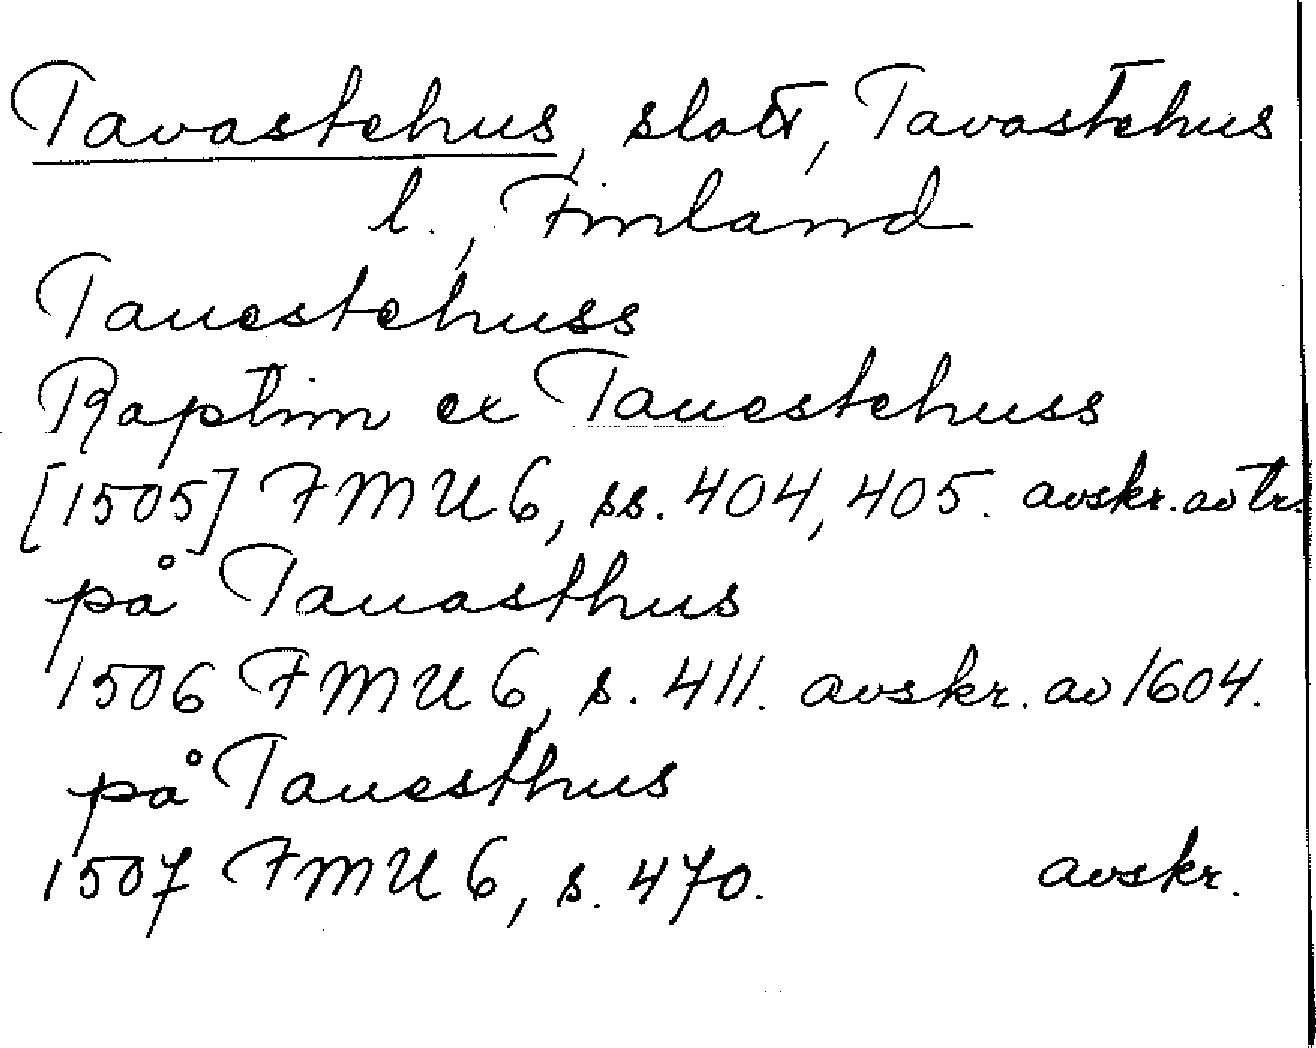 Tavastehus, slott, Tavastehus
l., Finland
Tauestehuss
Raptim ex Tauestehuss
[1505] FMU 6, ss. 404, 405. avskr. av tr.
på Tauasthus
1506 FMU 6, s. 411. avskr. av 1604.
på Tauesthus
1507 FMU 6, s. 470. avskr.